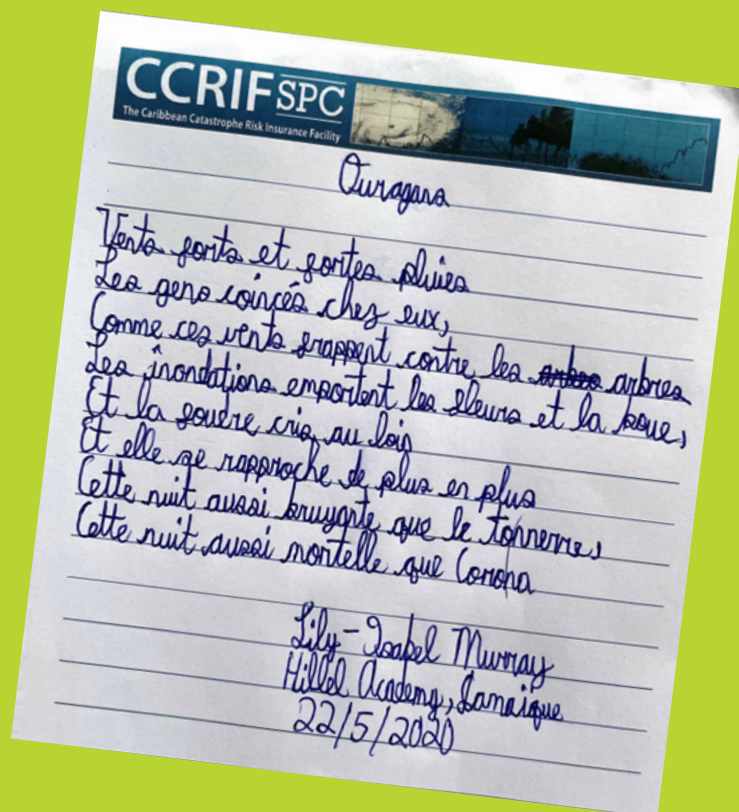 CCRIF SPC
The Caribbean Catastrophe Risk Insurance Facility
Ouragans
Vents forts et fortes pluies
Les gens coincés chez eux,
Comme ces vents frappent contre les arbres arbres
Les inondations emportent les fleurs et la boue,
Et la foudre cria au loin
Et elle se rapproche de plus en plus
Cette nuit aussi bruyante que le tonnerre,
Cette nuit aussi mortelle que Corona
Lily-Isabel Murray
Hillel Academy, Jamaique
22/5/2020